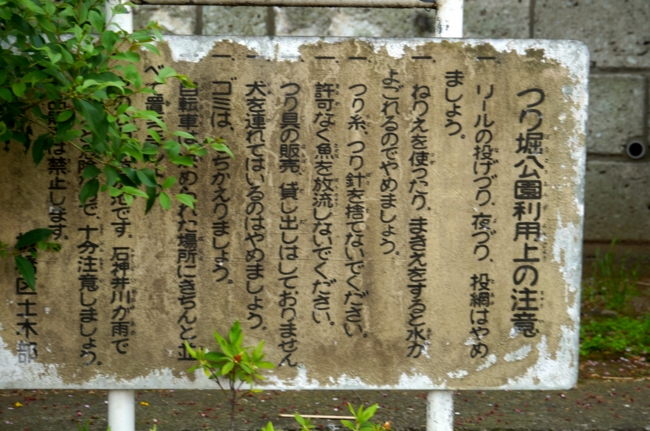 つり堀公園利用上の注意
一 リールの投げづり、夜づり、投網はやめ
ましょう。
一 ねりえを使ったり、まきえをすると水が
よごれるのでやめましょう。
一 つり糸、つり針を捨てないでください。
一 許可なく魚を放流しないでください。
一 つり具の販売、貸し出しはしておりません
一 犬を連れてはいるのはやめましょう。
一 ゴミは、もちかえりましょう。
自転車は、決められた場所にきちんと並
べて置き
池です。石神井川が雨で
十分注意しましょう。
は禁止します。
区土木部